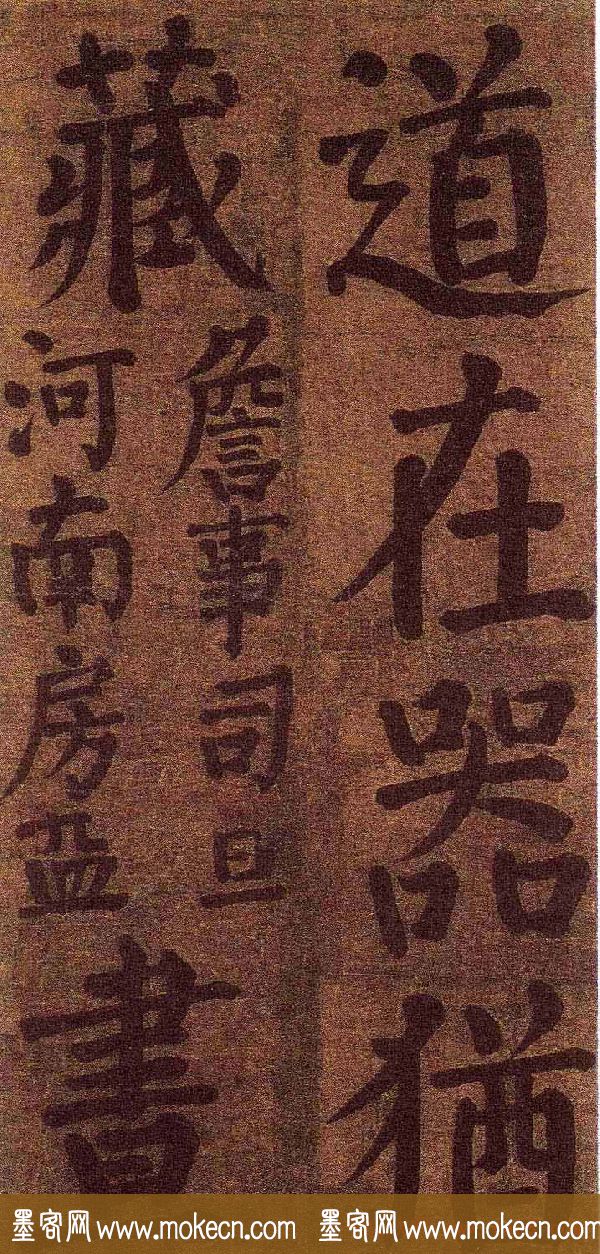 道在器猶
藏
詹事司旦
河南房
書
墨客网 www.mokecn.com 墨客网 www.mokecn.com